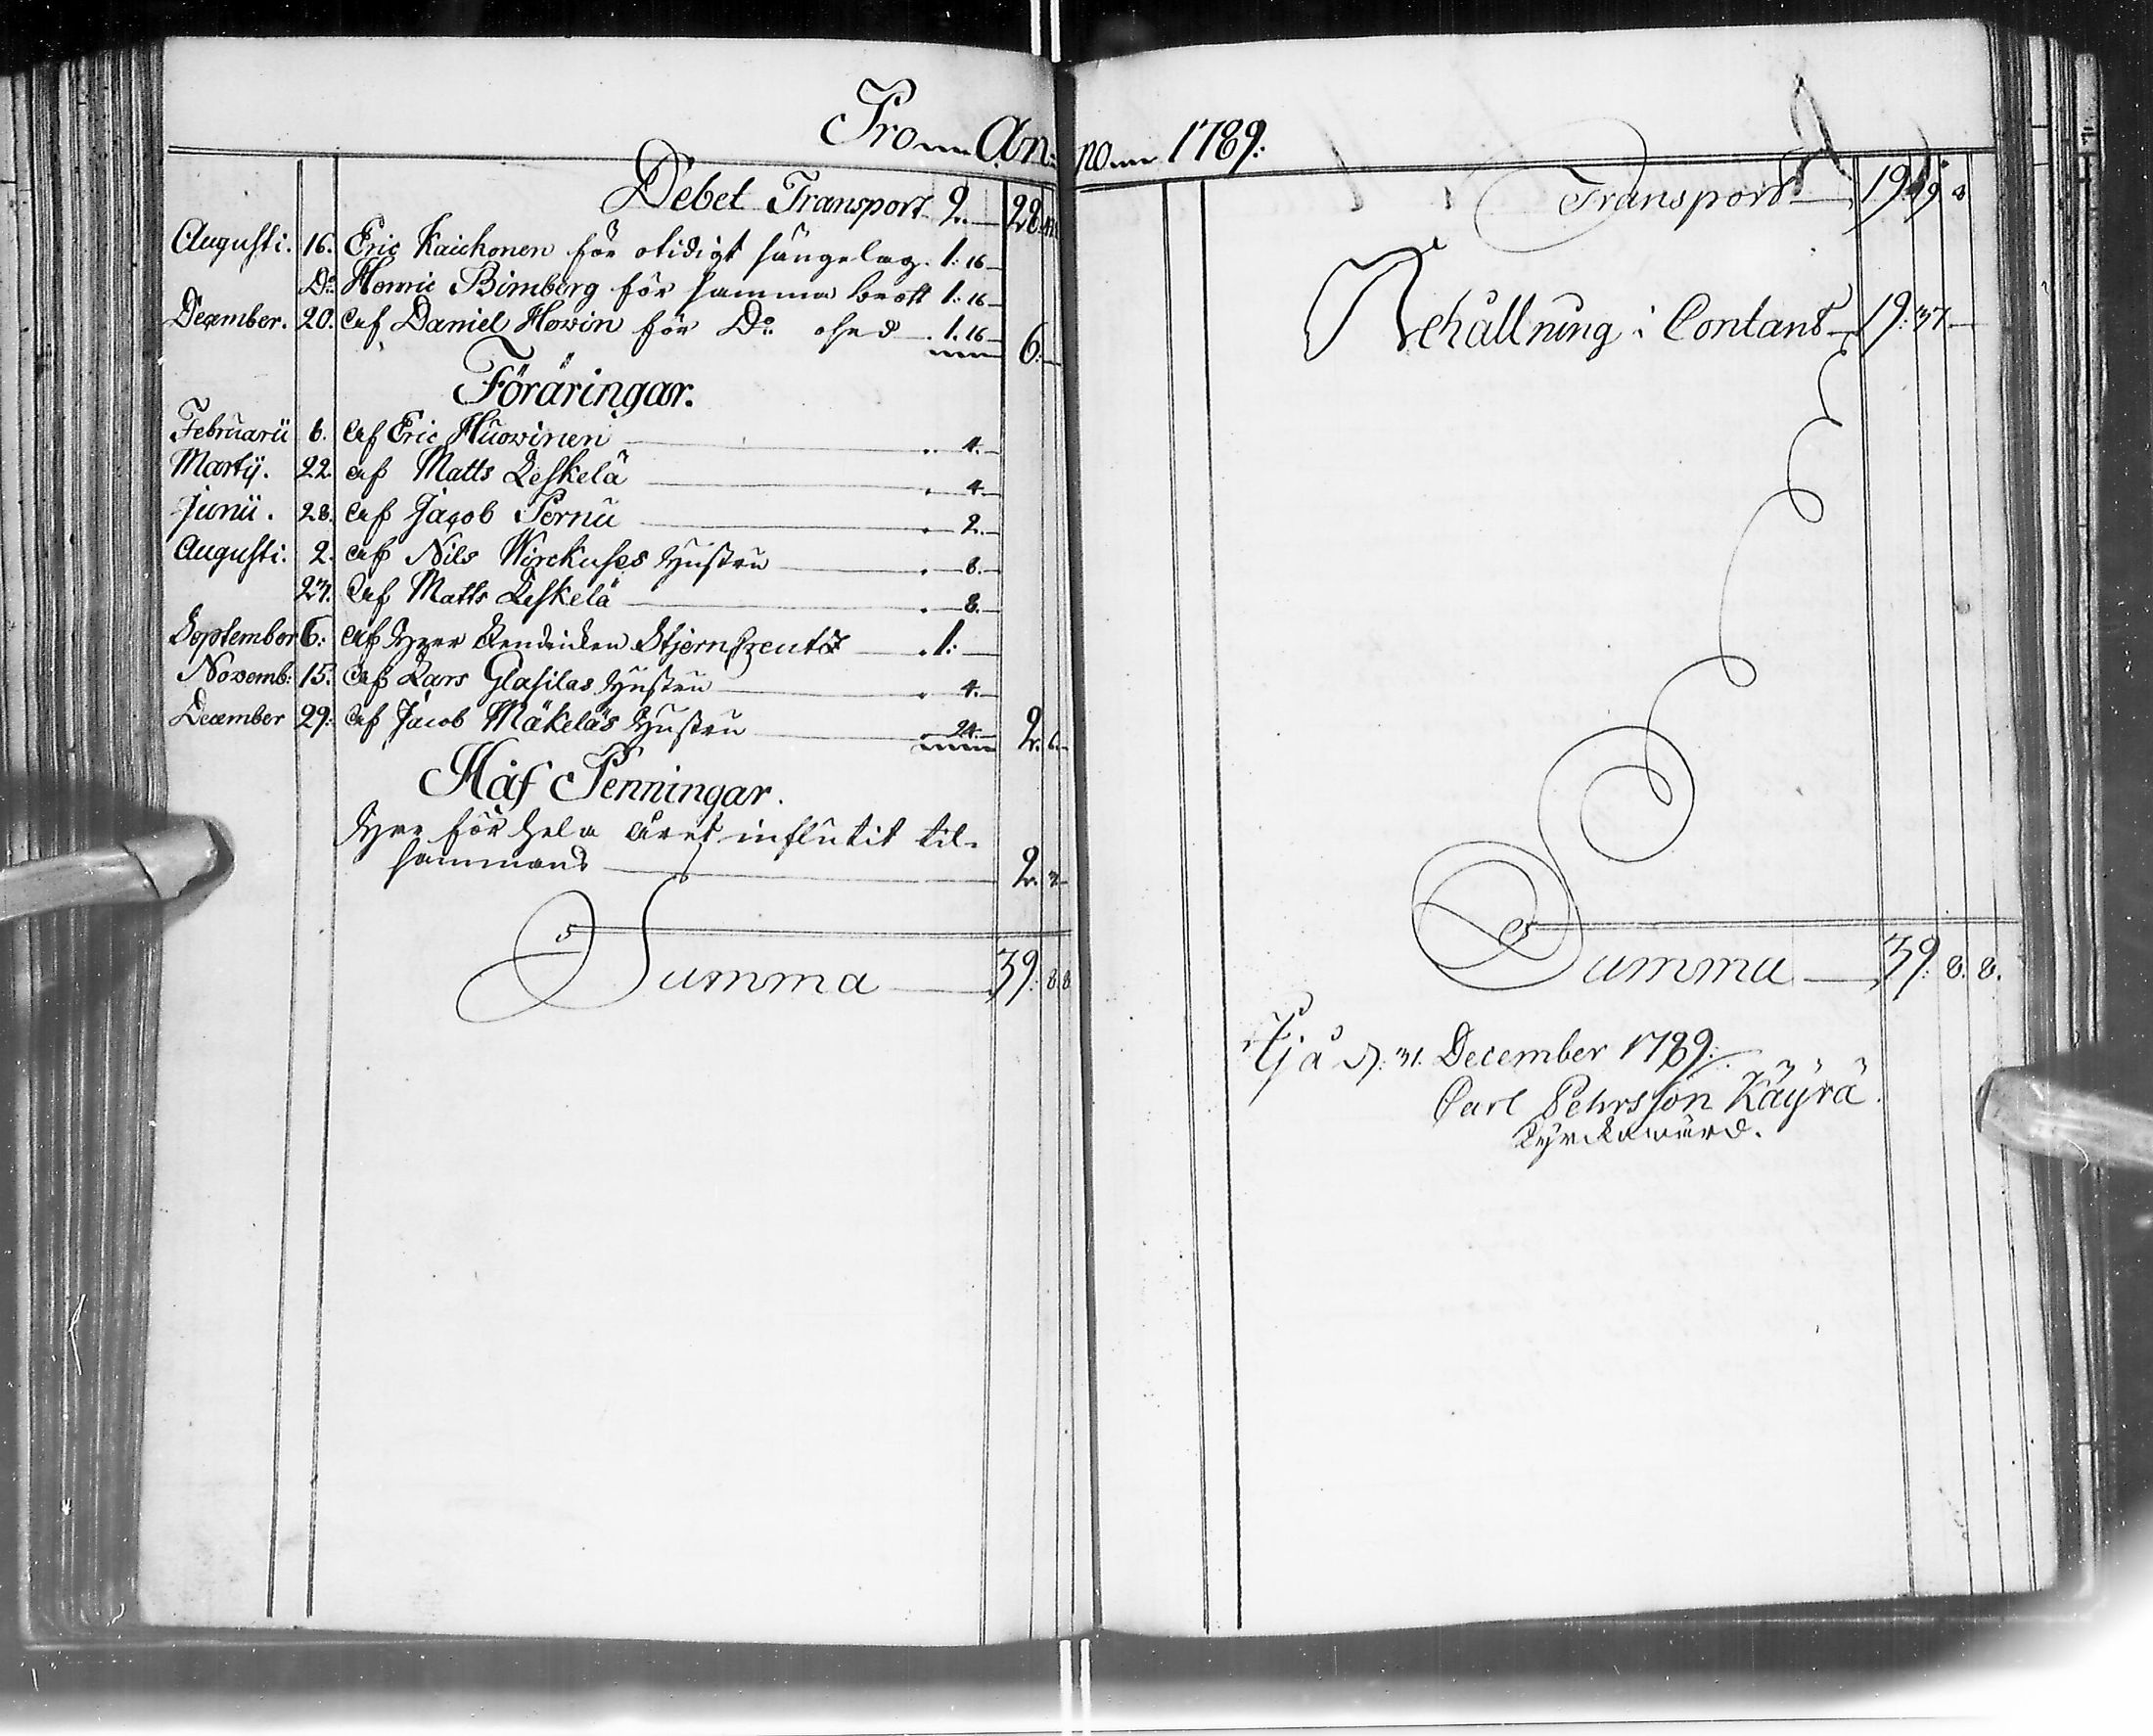 Pro Anno 1789:
Debet Transport 2. 28.
Augusti. 16. Eric Kaickonen för otidigt sängelag. 1: 16
Do Henric Bimberg för samma brott 1: 16
December. 20. af Daniel Howin för Do 1. 16 6:
Föräringar.
Februarii 6. af Eric Huowinen 4.
Martij. 22. af Matts Keskelä 4
Junii. 28. af Jacob Pernu 2.
Augusti. 2. af Nils Wirckuses Hustru 8.
27. af Matts Keskelä 8.
September 6: af Herr Stjerncreutz 1:
Novemb: 15. af Lars Glasilas Hustru 4.
December 29: af Jacob Mäkeläs Hustru 24. 2. 6.
Håf Penningar.
Har för hela året influtit til-
sammans 2.
Summa 39: 8. 8
Transport 19. 19
Behållning i Contant 19: 37
Summa 39: 8. 8.
Ijå d. 31. December 1789:
Carl Pehrsson Käyrä.
Kyrckowärd.